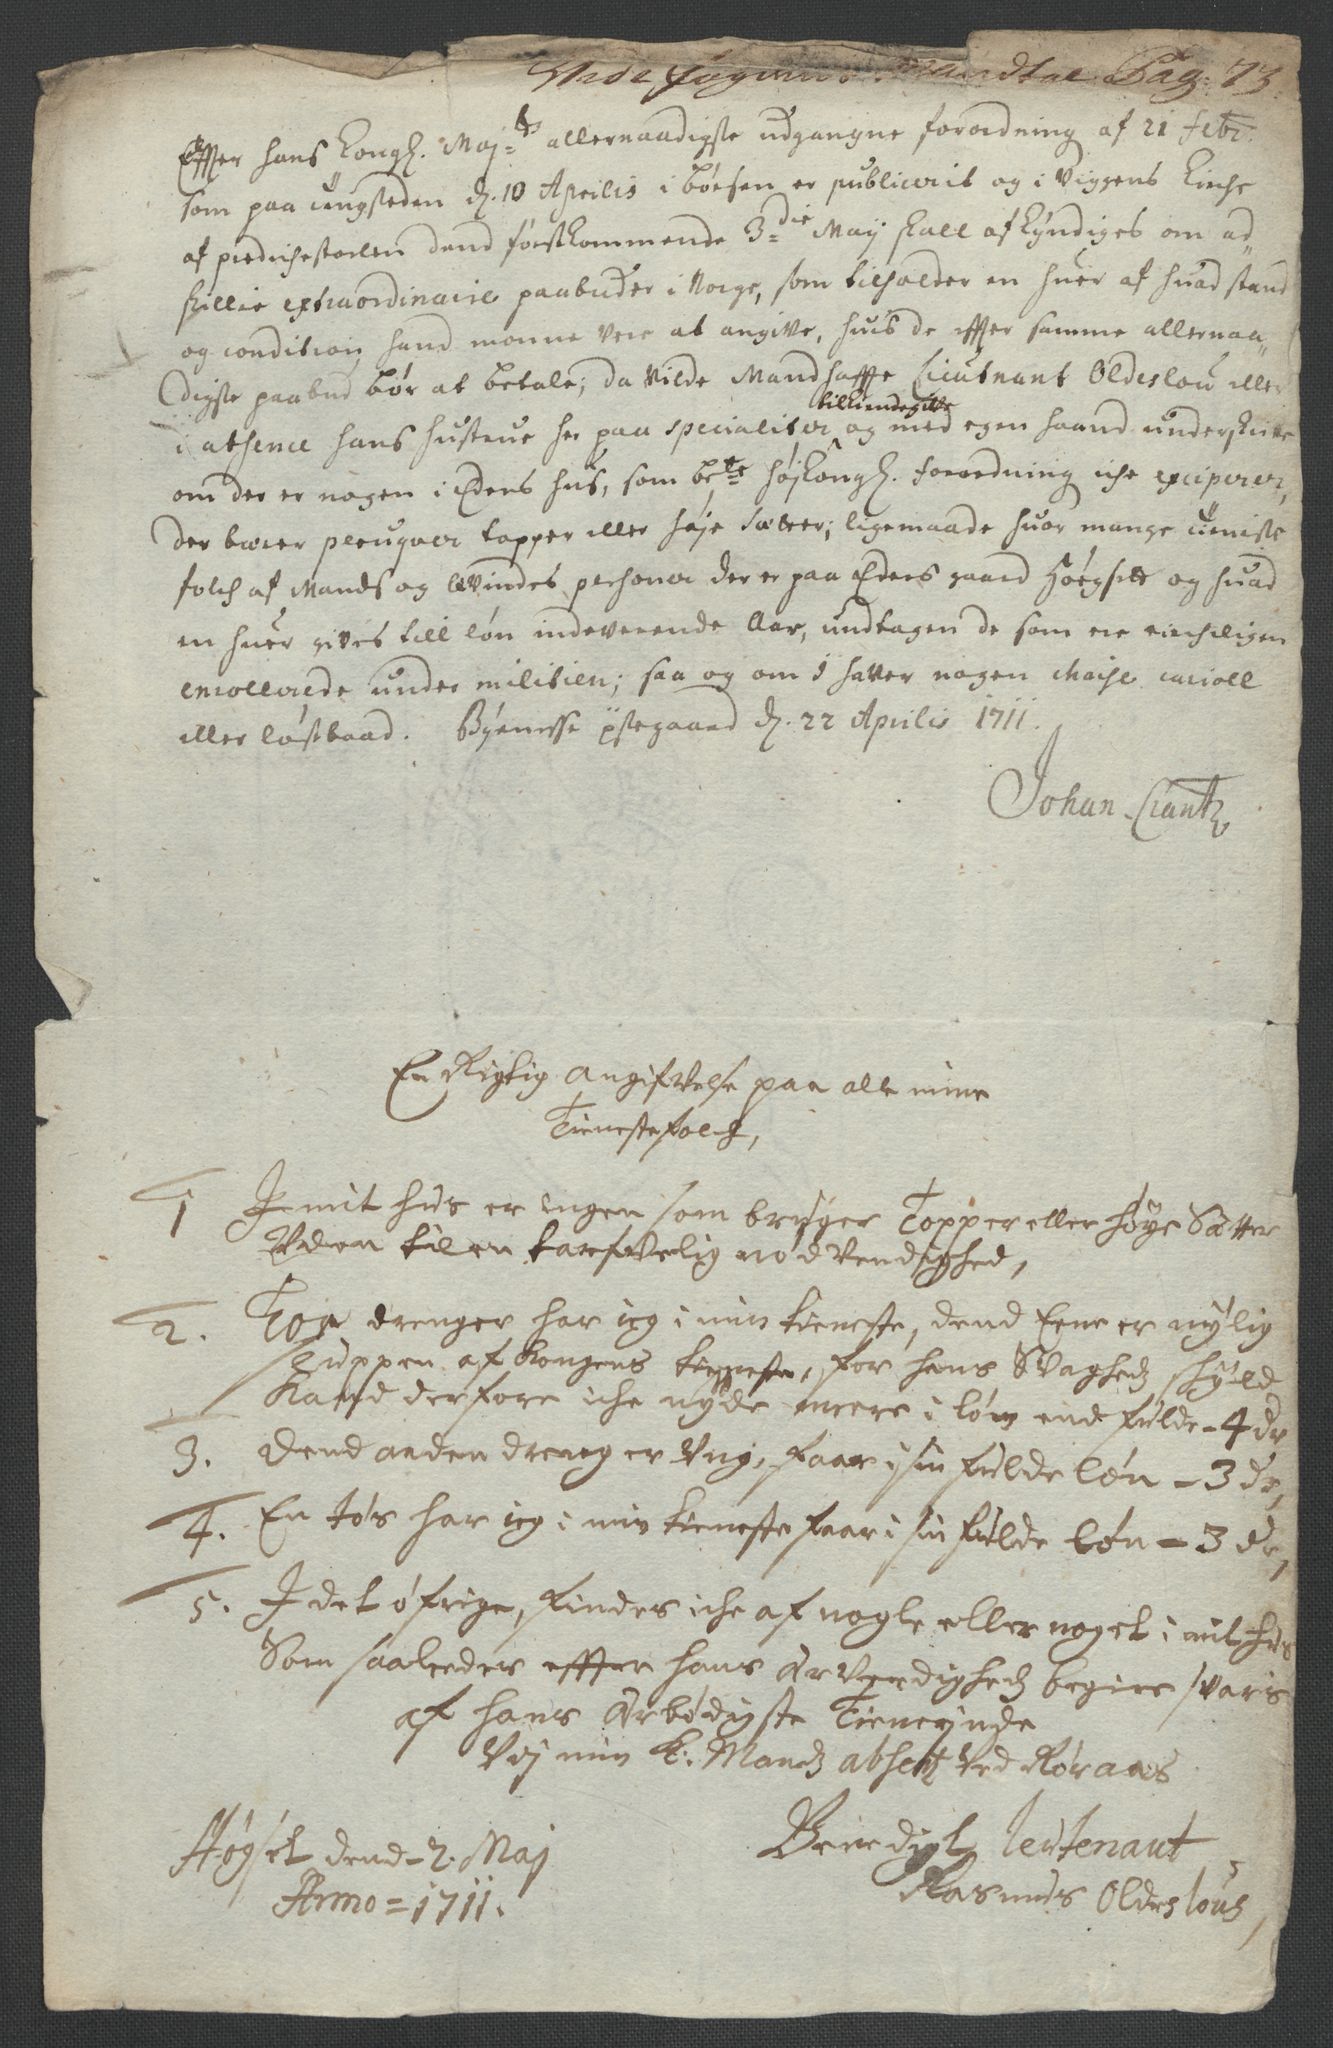 Vide fogdens Mandtal Pag: 73.
Effter hans Kongl. Maj:ts allernaadigste udgangne forordning af 21 febr:
som paa tingsteden d. 10 Aprilis i Børsen er publicerit og i Viggens Kirche
af predichestoelen dend førstkommende 3:die Maij skall afkyndiges om ad=
skillie extraordinaire paabuder i Norge, som tilholder en huer af huad stand
og condition hand monne vere at angive, huis de effter samme allernaa=
digste paabud bør at betale; da vilde Mandhaffte Lieutnant Oldeslou eller
i absence hans hustrue her paa specialiter tillkiendegifve og med egen haand underskrive
om der er nogen i Eders huus, som be:te højKongl. forordning iche exciperer,
der bærer peruqver topper eller høje sætter; ligemaade huor mange tieniste
folch af Mands og Qvindes personer der er paa Eders gaard Høegsett og huad
en huer gives till løn indeverende Aar, undtagen de som ere vircheligen
enrollerede under militien; saa og om I haver nogen chaise carioll
eller løstbaad. Byenesse ystegaard d. 22 Aprilis 1711.
Johan Crantz
En Rigtig angifvelse paa alle mine
Tienestefolch,
1 I mit hus er ingen som bruger Topper eller høye Sætter
Vden til en tarfvelig nødvendighed,
2. Toe drenger har ieg i min tieneste, dend Eene er nylig
sluppen af kongens tieneste, for hans Svagheds skyld
kand derfore iche nyde meere i løn end fulde - 4 dr
3. dend anden dreng er Vng, faar i sin fulde løn - 3 dr,
4. En tøs har ieg i min tieneste faar i sin fulde løn = 3 dr,
5. I det øfrige, findes iche af nogle eller noget i mit hus
Som saaleedes effter hans Ærverdigheds begiere svaris
af hans Ærbødigste Tienerinde
Vdj min k: Mands absentz ved Røraas
Høgset dend - 2. Maj
Anno = 1711.
Benedigt leutenant
Rasmus Oldeslous,